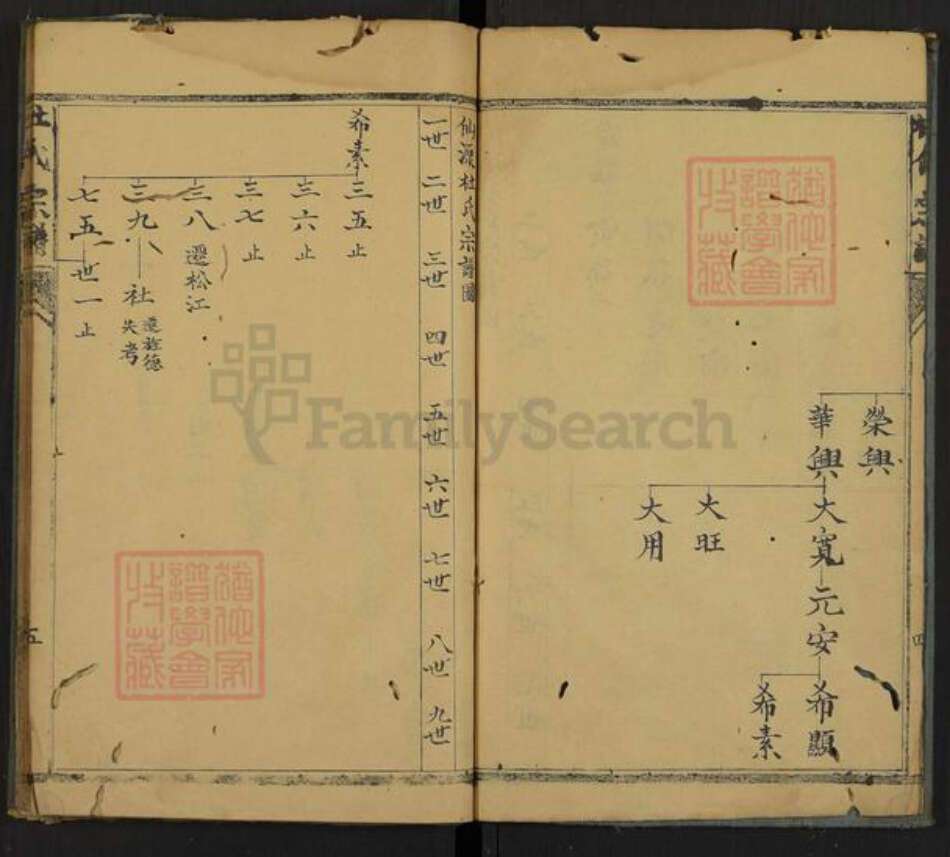 榮興
華興 大寬 元安 希顯
希素
大旺
大用
四
仙源杜氏宗譜圖
一世 二世 三世 四世 五世 六世 七世 八世 九世
希素 三五 止
三六 止
三七 止
三八 遷松江
三九 社 遷旌德 失考
七五 世一 止
杜氏宗譜
五
猶他家譜學會收藏
猶他家譜學會收藏
FamilySearch